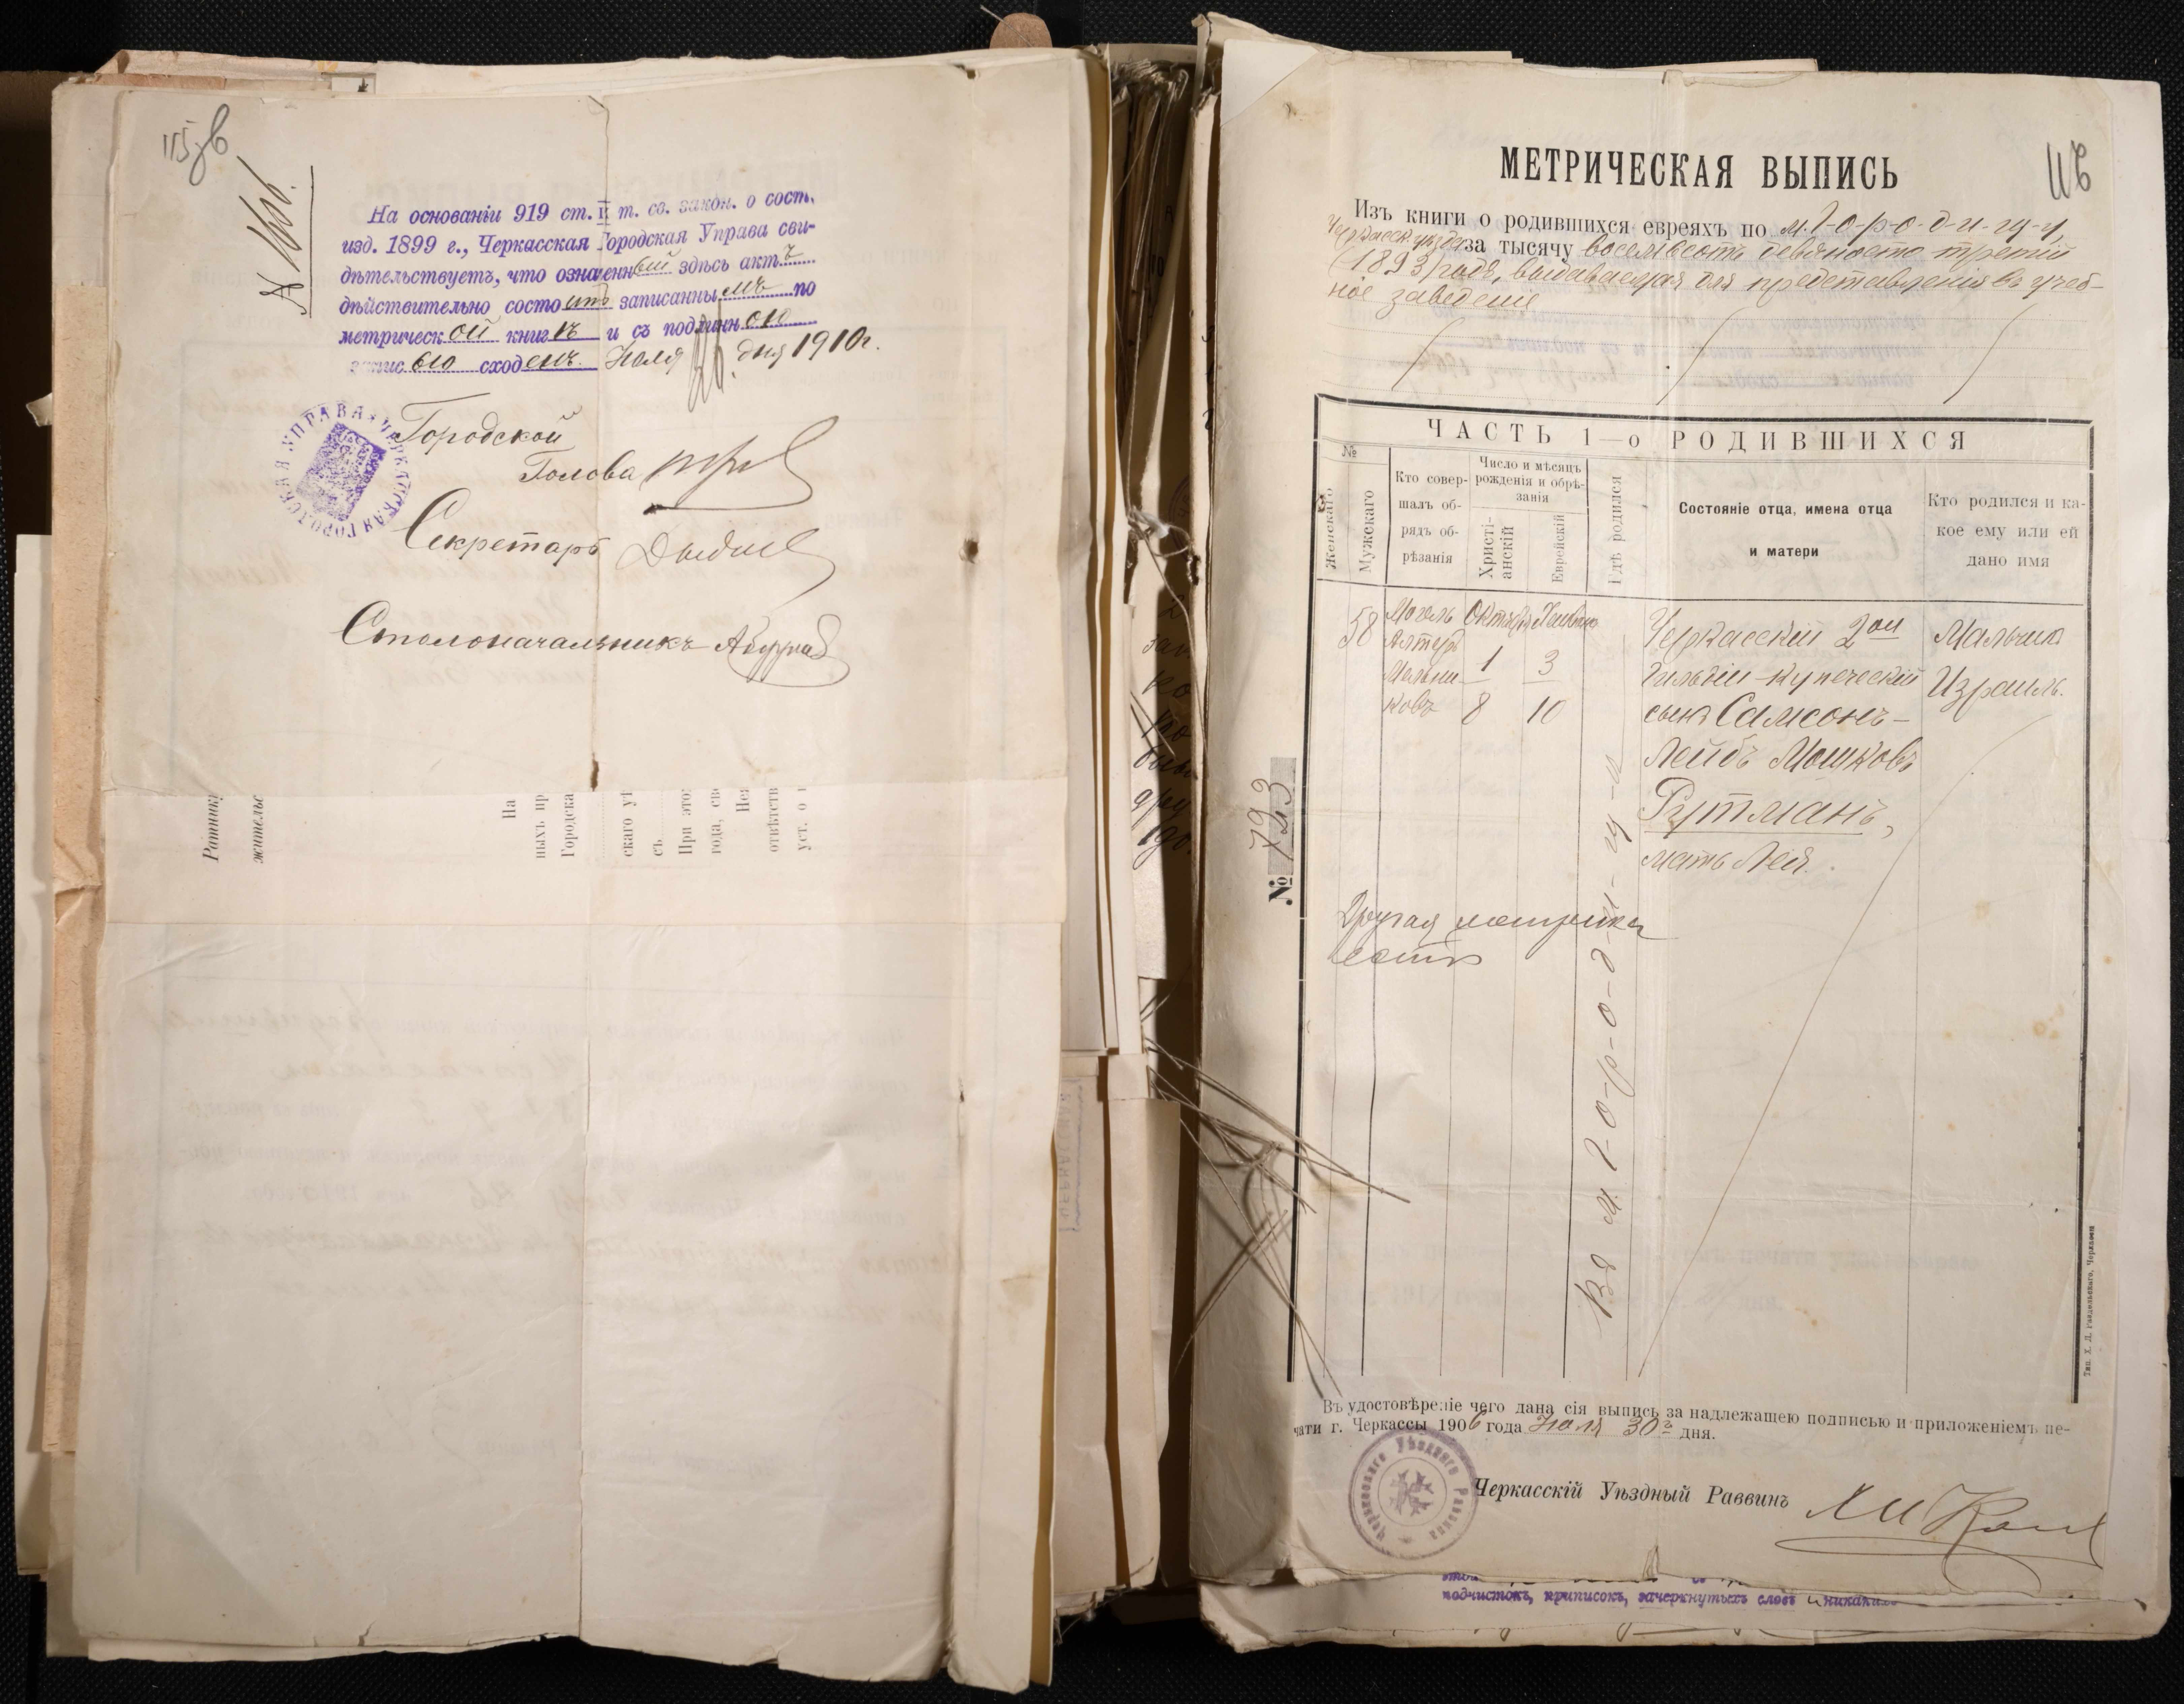 115 об
№ 1666.
На основаніи 919 ст. IX т. св. закон. о сост.
изд. 1899 г., Черкасская Городская Управа сви-
дѣтельствуетъ, что означенный здѣсь актъ
дѣйствительно состоитъ записаннымъ по
метрической книгѣ и съ подлинною
записью сходенъ. Іюля 26. дня 1910 г.
ЧЕРКАССКАЯ ГОРОДСКАЯ УПРАВА
Городской
Голова
Секретарь
Столоначальникъ
Ратнику
жительс
На
ныхъ пр
Городска
скаго уѣ
съ
При это
года, св
Нея
отвѣтств
уст. о
116
МЕТРИЧЕСКАЯ ВЫПИСЬ
Изъ книги о родившихся евреяхъ по м. Г-о-р-о-д-и-щ-у,
Черкасск. уѣзда за тысячу восемьсотъ девяносто третій
(1893) годъ, выдаваемая для представленія въ учеб-
ное заведеніе
ЧАСТЬ 1—о РОДИВШИХСЯ
№
Женскаго
Мужскаго
Кто совер-
шалъ об-
рядъ об-
рѣзанія
Число и мѣсяцъ
рожденія и обрѣ-
занія
Христі-
анскій
Еврейскій
Гдѣ родился
Состояніе отца, имена отца
и матери
Кто родился и ка-
кое ему или ей
дано имя
58
Могель
Алтеръ
Мельни-
ковъ
Октября
1
8
Хешвана
3
10
Въ м. Г-о-р-о-д-и-щ-ѣ
Черкасскій 2ой
гильдіи купеческій
сынъ Самсонъ-
Лейбъ Мошковъ
Рутманъ,
мать Лея.
Мальчикъ
Израиль.
№ 723
Другая метрика
есть
Тип. Х. Л. Гандельскаго, Черкассы
Въ удостовѣреніе чего дана сія выпись за надлежащею подписью и приложеніемъ пе-
чати г. Черкассы 1906 года Іюля 30го дня.
Черкасскаго Уѣзднаго Раввина
Черкасскій Уѣздный Раввинъ
подчистокъ, приписокъ, зачеркнутыхъ словъ и никакихъ